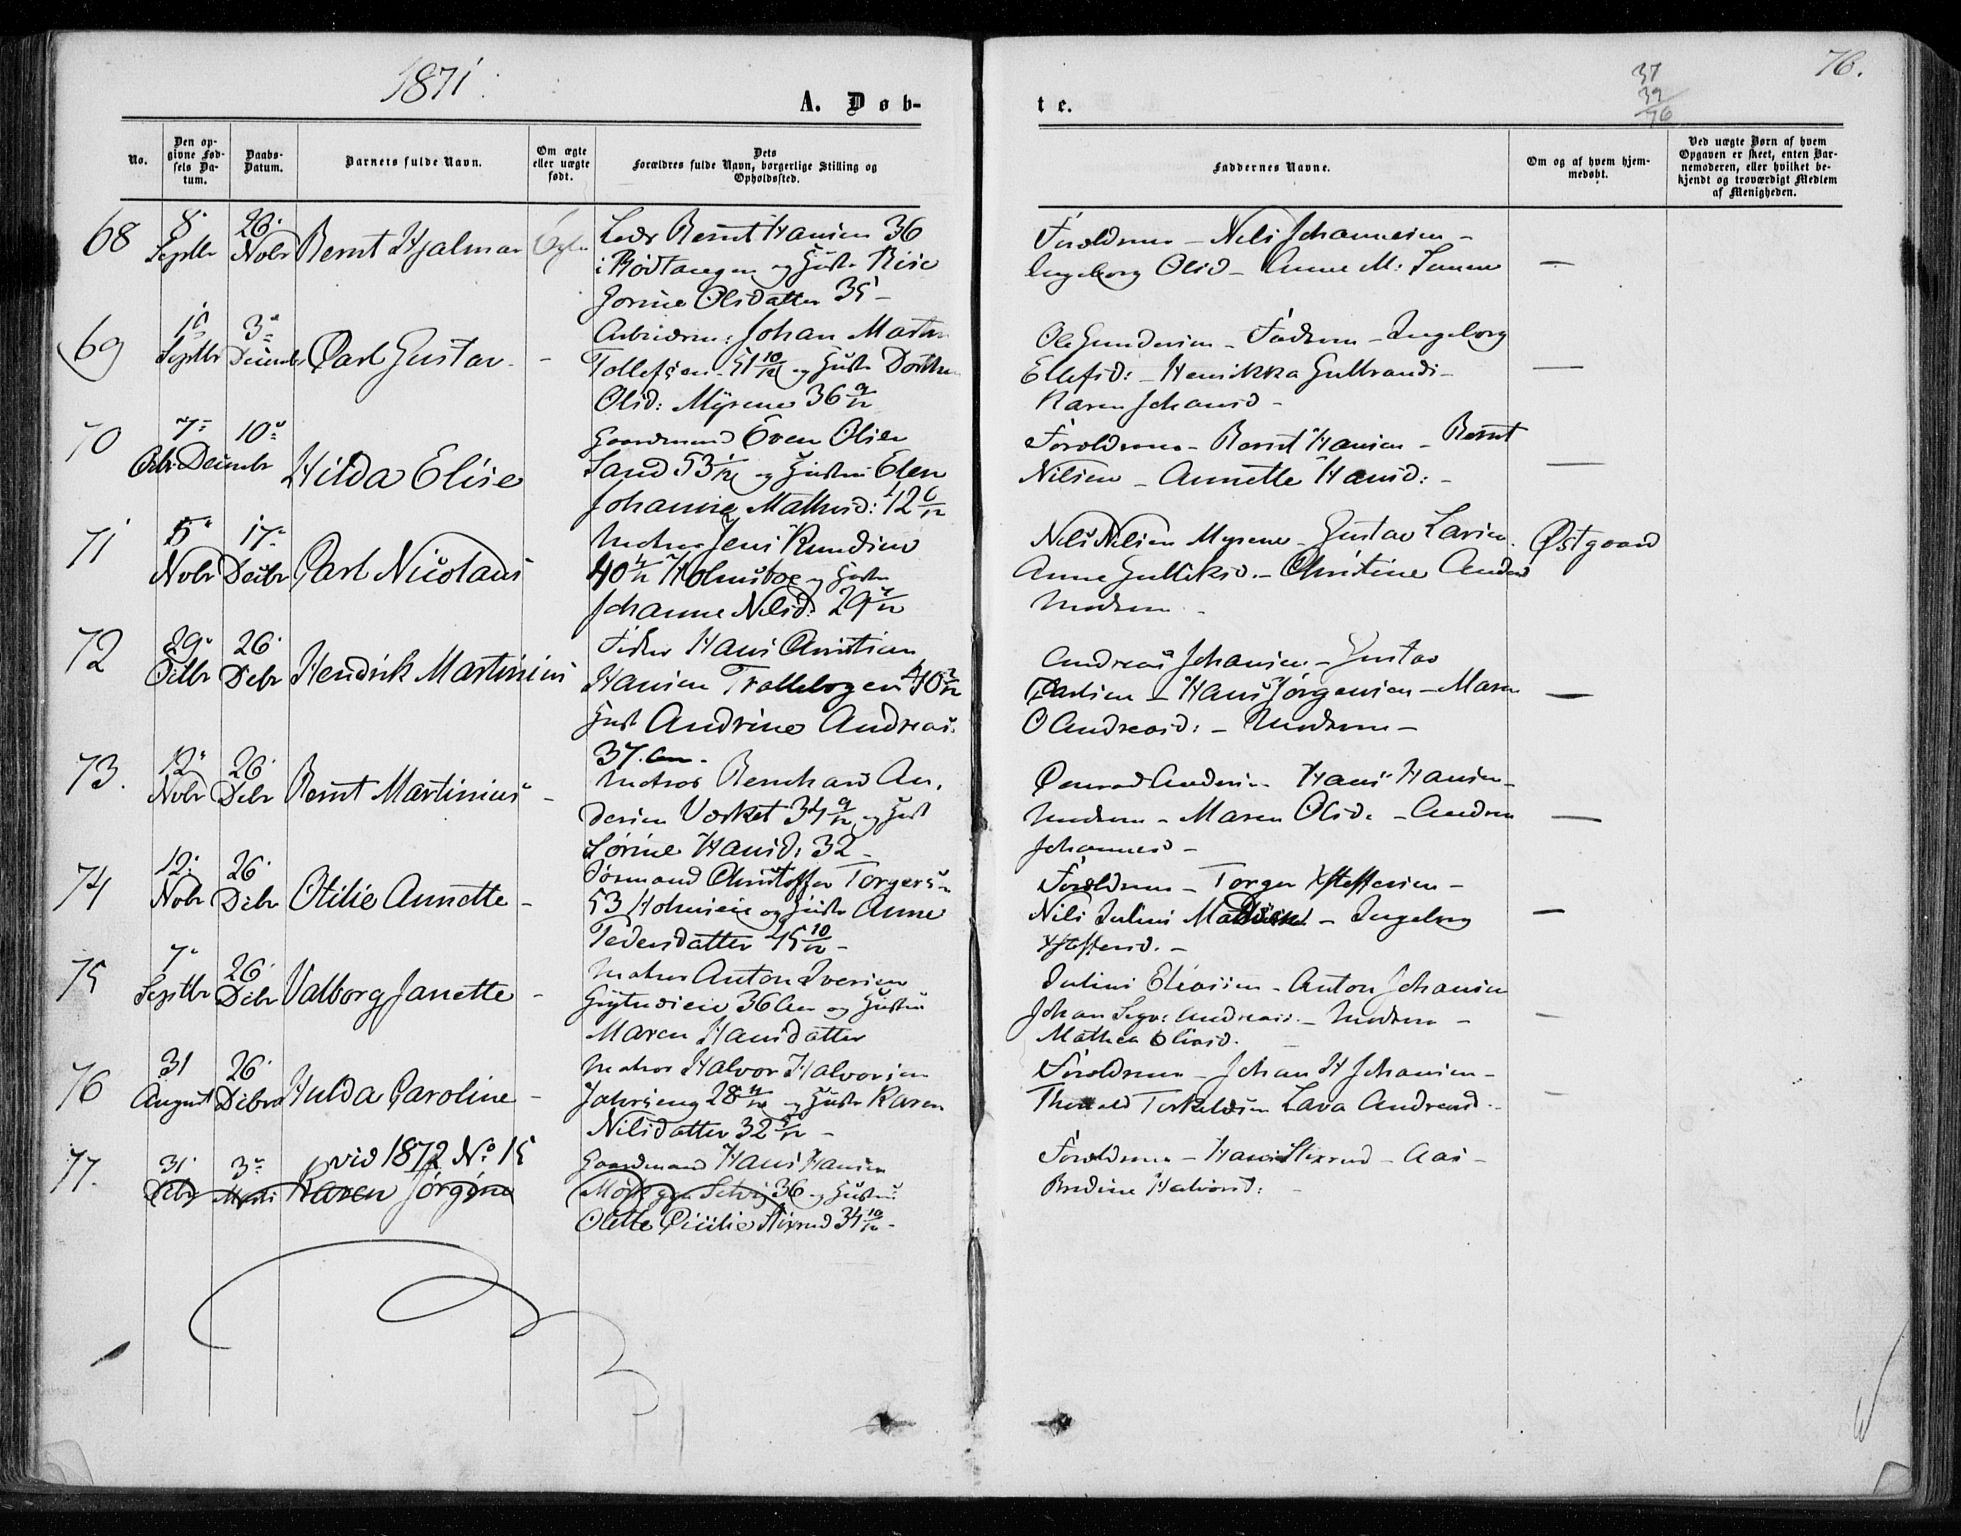 1871
A. Døb-
No.
Den opgivne Fødsels Datum.
Daabs-Datum.
Barnets fulde Navn.
Om ægte eller uægte født.
Dets Forældres fulde Navn, borgerlige Stilling og Opholdssted.
68
8. Septbr
26. Novbr
Bernt Hjalmar
Lods Bernt Hansen 36
i Rødtangen og Hustru
Jorine Olsdatter 35
69
Septbr
3 Decembr
Carl Gustav
Johan Martin
Tollefsen 51 10/12 og Hustru
Olsd: Myrene 36 9/12
70
7 Octbr
10 Decembr
Hilda Elise
Gaardmand Even Olsen
Sand 53 1/12 og Hustru Elen
Johanne Mathisd: 42 6/12
71
5 Novbr
17 Decbr
Carl Nicolaus
Matros Jens
40 Holmsboe og Hustru
Johanne Nilsd: 29
72
29 Octbr
26 Decbr
Hendrik Martinius
Fisker Hans Christian
Hansen Trolleborgen 40 2/12
Hust Andrine Andreas:
37 Aar
73.
12 Novbr
26 Decbr
Bernt Martinius
Matros Bernhard An-
dersen Værket 34 9/12 og Hust
Sørine Hansd: 32
74
12 Novbr
26 Decbr
Otilie Annette
Christoffer Torgers:
53 Holmsboe og Hustru Anne
Pedersdatter 45 10/12
75
7 Septbr
26 Decbr
Valborg Janette
Matros Anton Iversen
36 Aar og Hustru
Maren Hansdatter
76
31 August
26 Decbr
Hulda Caroline
Matros Halvor Halvorsen
28 og Hustru Karen
Nilsdatter 32
77.
vid 1872 No 15
31 Decbr
3 Marts
Karen Jørgine
Gaardmand Hans Hansen
Selvig 36 og Hustru
Olette Cicilie Stixrud 34 10/12
te.
37
39
76
76.
Faddernes Navne.
Om og af hvem hjemmedøbt.
Ved uægte Børn af hvem Opgaven er skeet, enten Barnemoderen, eller hvilket bekjendt og troværdigt Medlem af Menigheden.
Forældrene – Nils Johannesen –
Ingeborg Olsd – Anne M:
Ole Gundersen – Faderen – Ingeborg
Ellefsd: – Henrikka Gulbrands –
Karen Johansd –
Forældrene – Bernt Hansen – Bernt
Nilsen – Annette Hansd: –
Nils Nilsen Myrene – Gustav Larsen
Østgaard
Anne Gulliksd. – Christine Anders
Moderen
Andreas Johansen – Gustav
Carlsen – Hans Jørgensen – Maren
O Andreasd: – Moderen –
Conrad Andersen Hans Hansen –
Moderen – Maren Olsd. – Andrea
Johannesd –
Forældrene – Torger Kristoffersen –
Nils Julius Madsen – Ingeborg
Kristoffersd. –
Julius Eliassen – Anton Johansen
Johan Andreas. – Moderen –
Mathea Eliasd.
Forældrene – Johan H Johansen –
Torkeldsen Lava Andreasd.
Forældrene – Hans Stixrud – Aas –
Bredine Halvorsd: